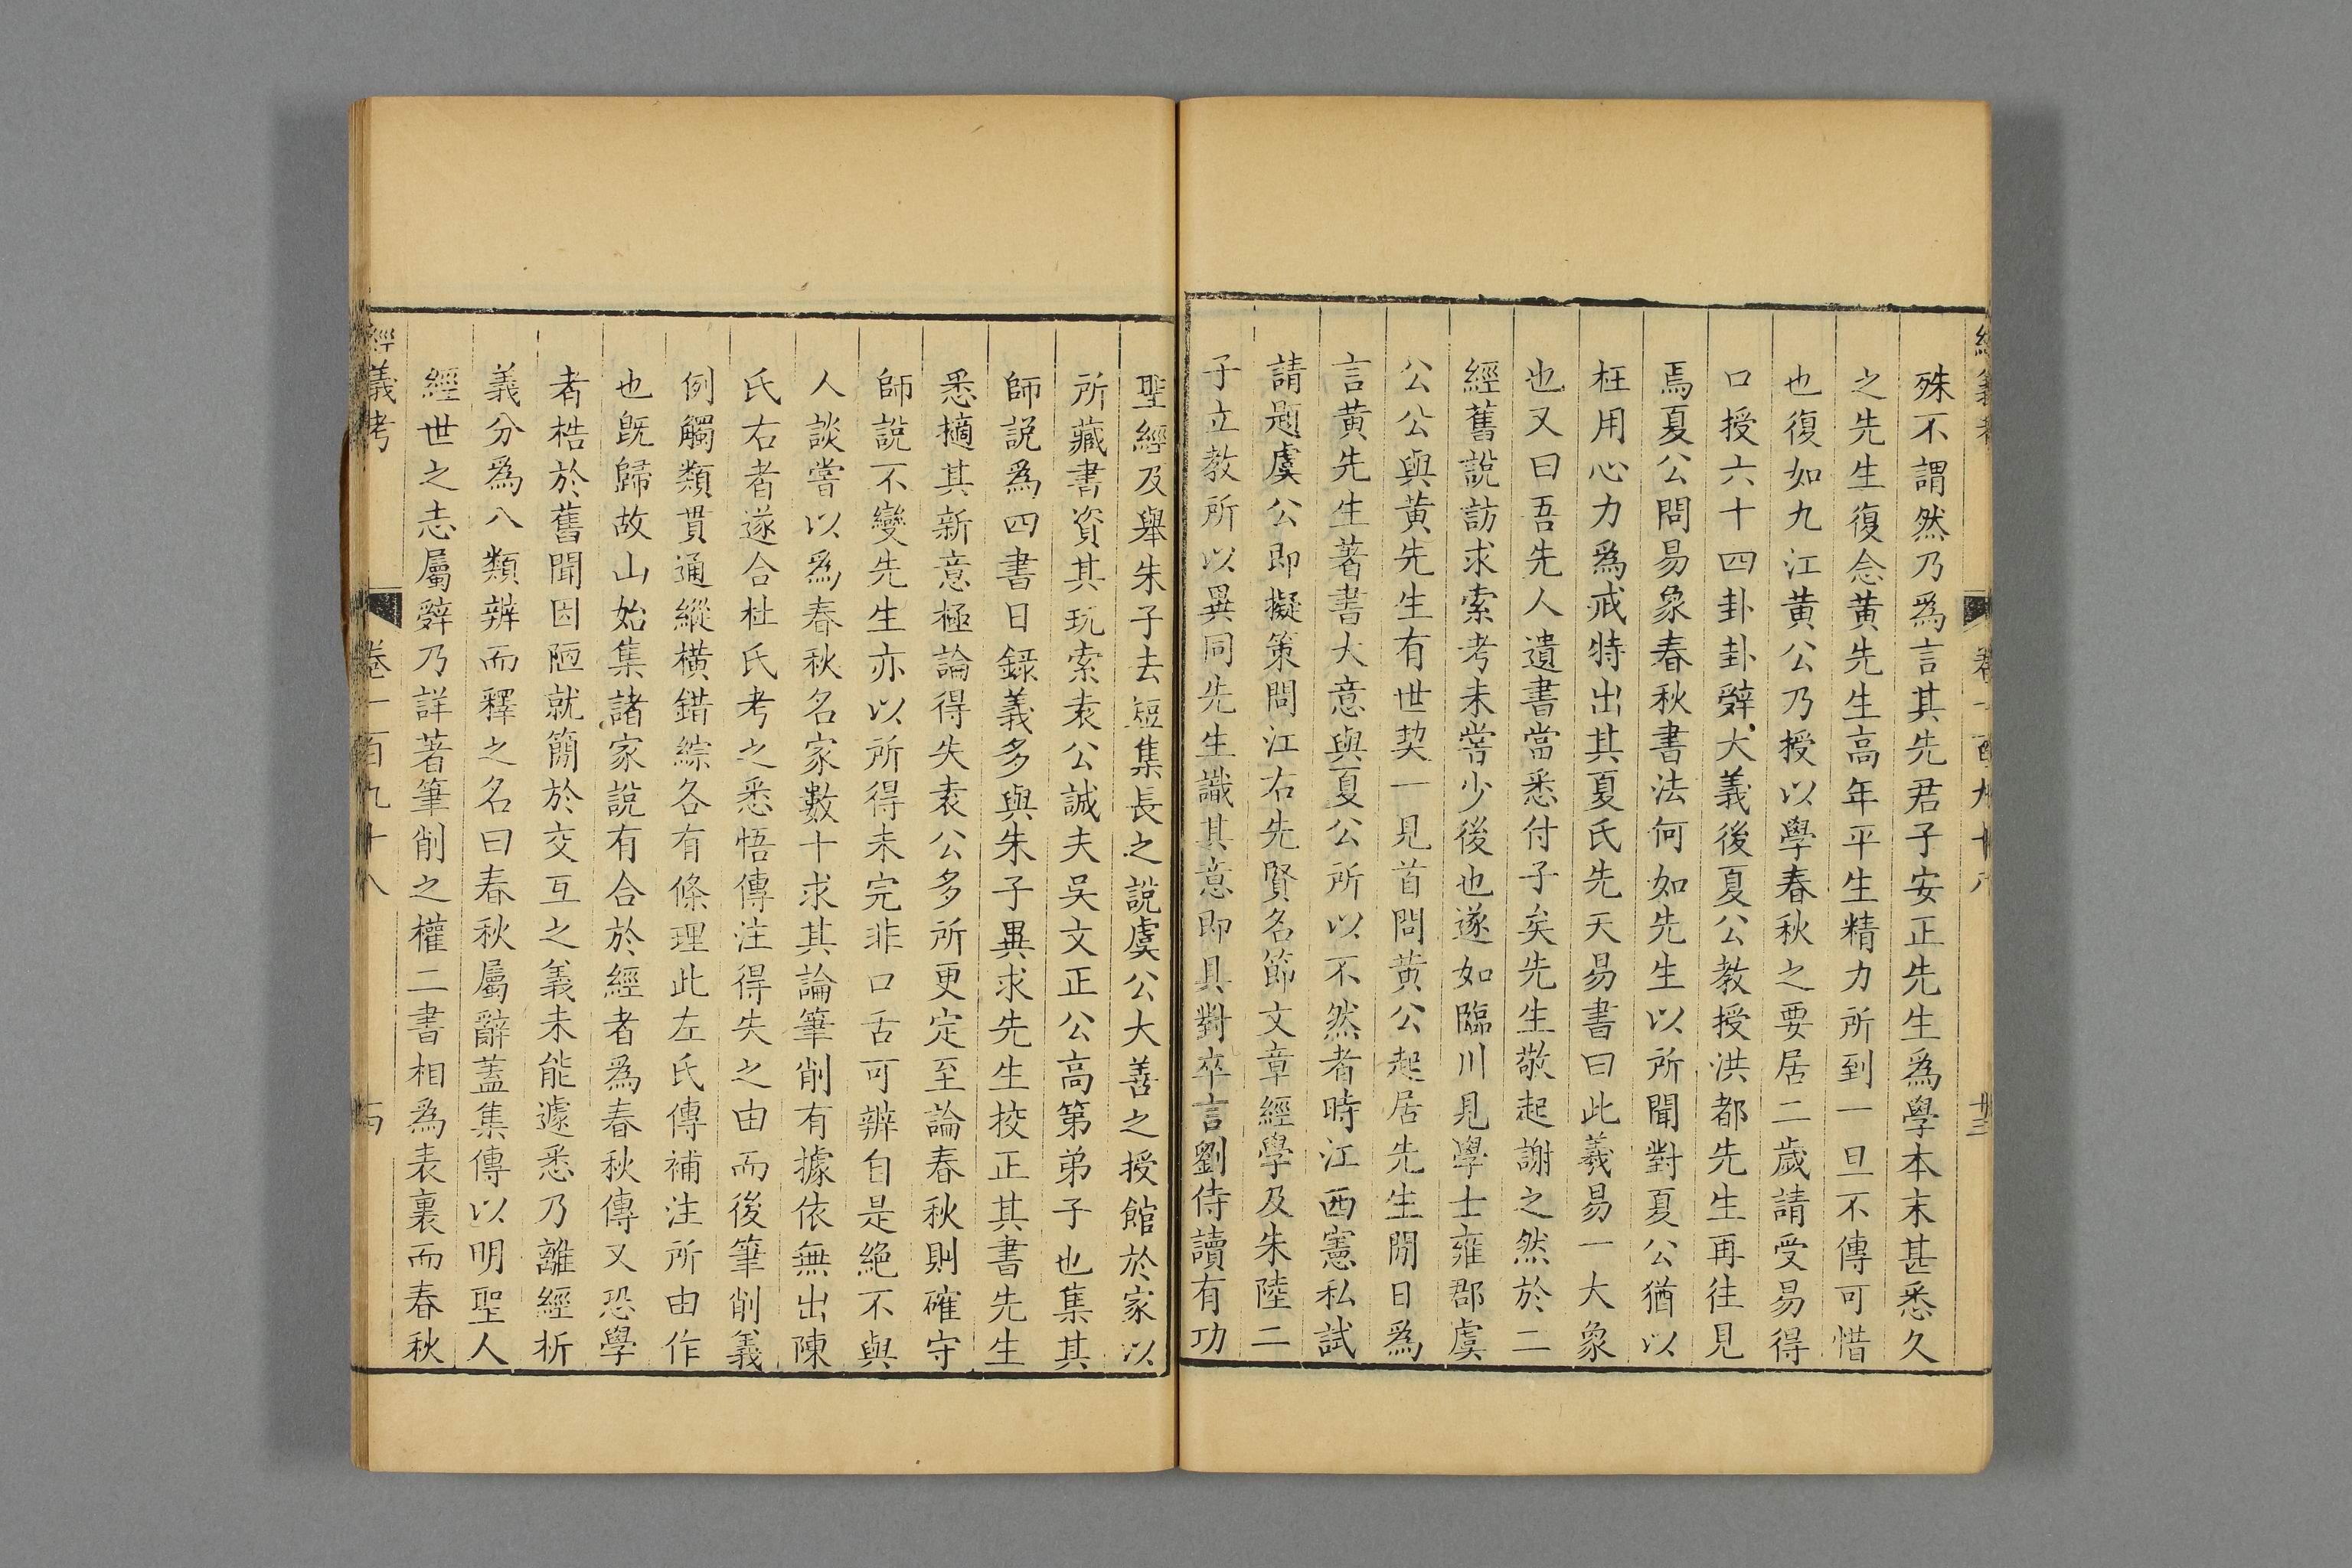 殊不謂然乃爲言其先君子安正先生爲學本末甚悉久
之先生復念黃先生高年平生精力所到一旦不傳可惜
也復如九江黃公乃授以學春秋之要居二歲請受易得
口授六十四卦卦辭大義後夏公教授洪都先生再往見
焉夏公問易象春秋書法何如先生以所聞對夏公猶以
枉用心力爲戒特出其夏氏先天易書曰此羲易一大象
也又曰吾先人遺書當悉付子矣先生敬起謝之然於二
經舊說訪求索考未嘗少後也遂如臨川見學士雍郡虞
公公與黃先生有世契一見首問黃公起居先生閒日爲
言黃先生著書大意與夏公所以不然者時江西憲私試
請題虞公即擬策問江右先賢名節文章經學及朱陸二
子立教所以異同先生識其意即具對卒言劉侍讀有功
聖經及舉朱子去短集長之說虞公大善之授館於家以
所藏書資其玩索袁公誠夫吳文正公高第弟子也集其
師說爲四書日錄義多與朱子異求先生挍正其書先生
悉擿其新意極論得失袁公多所更定至論春秋則確守
師說不變先生亦以所得未完非口舌可辨自是絕不與
人談嘗以爲春秋名家數十求其論筆削有據依無出陳
氏右者遂合杜氏考之悉悟傳注得失之由而後筆削義
例觸類貫通縱橫錯綜各有條理此左氏傳補注所由作
也旣歸故山始集諸家說有合於經者爲春秋傳又恐學
者梏於舊聞因陋就簡於交互之義未能遽悉乃離經析
義分爲八類辨而釋之名曰春秋屬辭蓋集傳以明聖人
經世之志屬辭乃詳著筆削之權二書相爲表裏而春秋
經義考 卷一百九十八